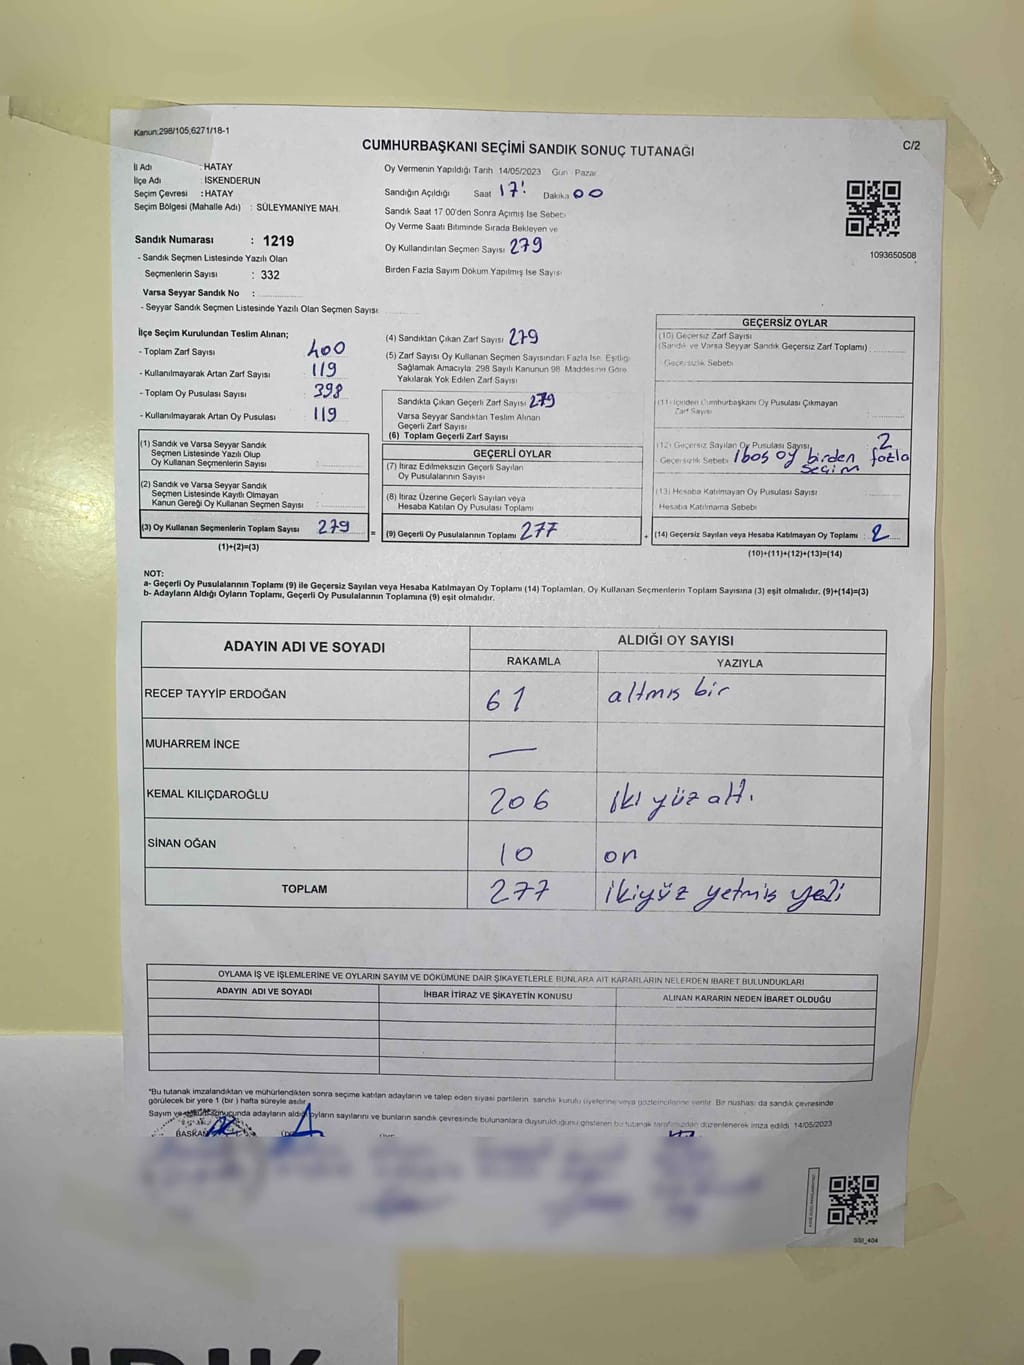 Kanun:298/105,6271/18-1
CUMHURBAŞKANI SEÇİMİ SANDIK SONUÇ TUTANAĞI
C/2
İl Adı : HATAY
İlçe Adı : İSKENDERUN
Seçim Çevresi : HATAY
Seçim Bölgesi (Mahalle Adı) : SÜLEYMANİYE MAH.
Sandık Numarası : 1219
- Sandık Seçmen Listesinde Yazılı Olan
Seçmenlerin Sayısı : 332
Varsa Seyyar Sandık No :
- Seyyar Sandık Seçmen Listesinde Yazılı Olan Seçmen Sayısı:
Oy Vermenin Yapıldığı Tarih 14/05/2023 Gün : Pazar
Sandığın Açıldığı Saat 17: Dakika 00
Sandık Saat 17.00'den Sonra Açımış İse Sebebi
Oy Verme Saati Bitiminde Sırada Bekleyen ve
Oy Kullandırılan Seçmen Sayısı 279
Birden Fazla Sayım Döküm Yapılmış İse Sayısı
1093650508
İlçe Seçim Kurulundan Teslim Alınan;
- Toplam Zarf Sayısı 400
- Kullanılmayarak Artan Zarf Sayısı 119
- Toplam Oy Pusulası Sayısı 398
- Kullanılmayarak Artan Oy Pusulası 119
(1) Sandık ve Varsa Seyyar Sandık
Seçmen Listesinde Yazılı Olup
Oy Kullanan Seçmenlerin Sayısı :
(2) Sandık ve Varsa Seyyar Sandık
Seçmen Listesinde Kayıtlı Olmayan
Kanun Gereği Oy Kullanan Seçmen Sayısı :
(3) Oy Kullanan Seçmenlerin Toplam Sayısı 279 =
(1)+(2)=(3)
(4) Sandıktan Çıkan Zarf Sayısı 279
(5) Zarf Sayısı Oy Kullanan Seçmen Sayısından Fazla İse, Eşitliği
Sağlamak Amacıyla; 298 Sayılı Kanunun 98. Maddesine Göre
Yakılarak Yok Edilen Zarf Sayısı
Sandıkta Çıkan Geçerli Zarf Sayısı 279
Varsa Seyyar Sandıktan Teslim Alınan
Geçerli Zarf Sayısı
(6) Toplam Geçerli Zarf Sayısı
GEÇERLİ OYLAR
(7) İtiraz Edilmeksizin Geçerli Sayılan
Oy Pusulalarının Sayısı
(8) İtiraz Üzerine Geçerli Sayılan veya
Hesaba Katılan Oy Pusulası Toplamı
(9) Geçerli Oy Pusulalarının Toplamı 277 +
GEÇERSİZ OYLAR
(10) Geçersiz Zarf Sayısı
(Sandık ve Varsa Seyyar Sandık Geçersiz Zarf Toplamı)
Geçersizlik Sebebi
(11) İçinden Cumhurbaşkanı Oy Pusulası Çıkmayan
Zarf Sayısı
(12) Geçersiz Sayılan Oy Pusulası Sayısı 2
Geçersizlik Sebebi 1 boş oy birden fazla
seçim
(13) Hesaba Katılmayan Oy Pusulası Sayısı
Hesaba Katılmama Sebebi
(14) Geçersiz Sayılan veya Hesaba Katılmayan Oy Toplamı : 2
(10)+(11)+(12)+(13)=(14)
NOT:
a- Geçerli Oy Pusulalarının Toplamı (9) ile Geçersiz Sayılan veya Hesaba Katılmayan Oy Toplamı (14) Toplamları, Oy Kullanan Seçmenlerin Toplam Sayısına (3) eşit olmalıdır. (9)+(14)=(3)
b- Adayların Aldığı Oyların Toplamı, Geçerli Oy Pusulalarının Toplamına (9) eşit olmalıdır.
ADAYIN ADI VE SOYADI
ALDIĞI OY SAYISI
RAKAMLA YAZIYLA
RECEP TAYYİP ERDOĞAN 61 altmıs bir
MUHARREM İNCE —
KEMAL KILIÇDAROĞLU 206 iki yüz altı
SİNAN OĞAN 10 on
TOPLAM 277 ikiyüz yetmis yedi
OYLAMA İŞ VE İŞLEMLERİNE VE OYLARIN SAYIM VE DÖKÜMÜNE DAİR ŞİKAYETLERLE BUNLARA AİT KARARLARIN NELERDEN İBARET BULUNDUKLARI
ADAYIN ADI VE SOYADI İHBAR İTİRAZ VE ŞİKAYETİN KONUSU ALINAN KARARIN NEDEN İBARET OLDUĞU
*Bu tutanak imzalandıktan ve mühürlendikten sonra seçime katılan adayların ve talep eden siyasi partilerin sandık kurulu üyelerine veya gözlemcilerine verilir. Bir nüshası da sandık çevresinde
görülecek bir yere 1 (bir ) hafta süreyle asılır.
Sayım ve sonucunda adayların aldığı oyların sayılarını ve bunların sandık çevresinde bulunanlara duyurulduğunu gösteren bu tutanak tarafımızdan düzenlenerek imza edildi. 14/05/2023
BAŞKAN
SSI_404
NDIK